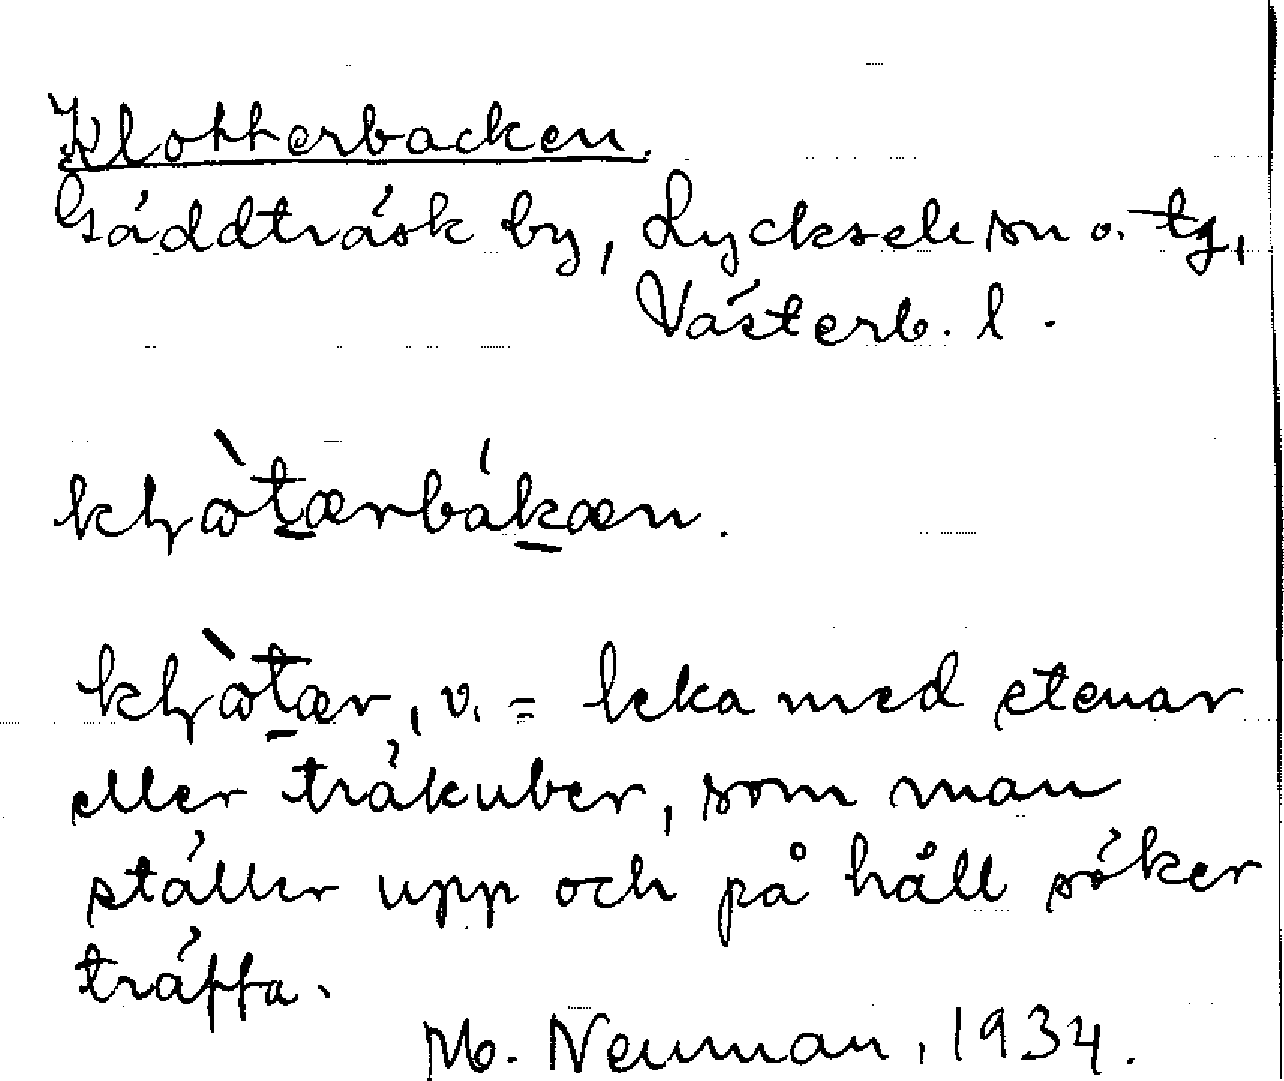 Klotterbacken.
Gäddträsk by, Lycksele sn o. tg,
Västerb. l.
kḷὼtærbákæn.
kḷὼtær, v. = leka med stenar
eller träkuber, som man
ställer upp och på håll söker
träffa.
M. Neuman, 1934.